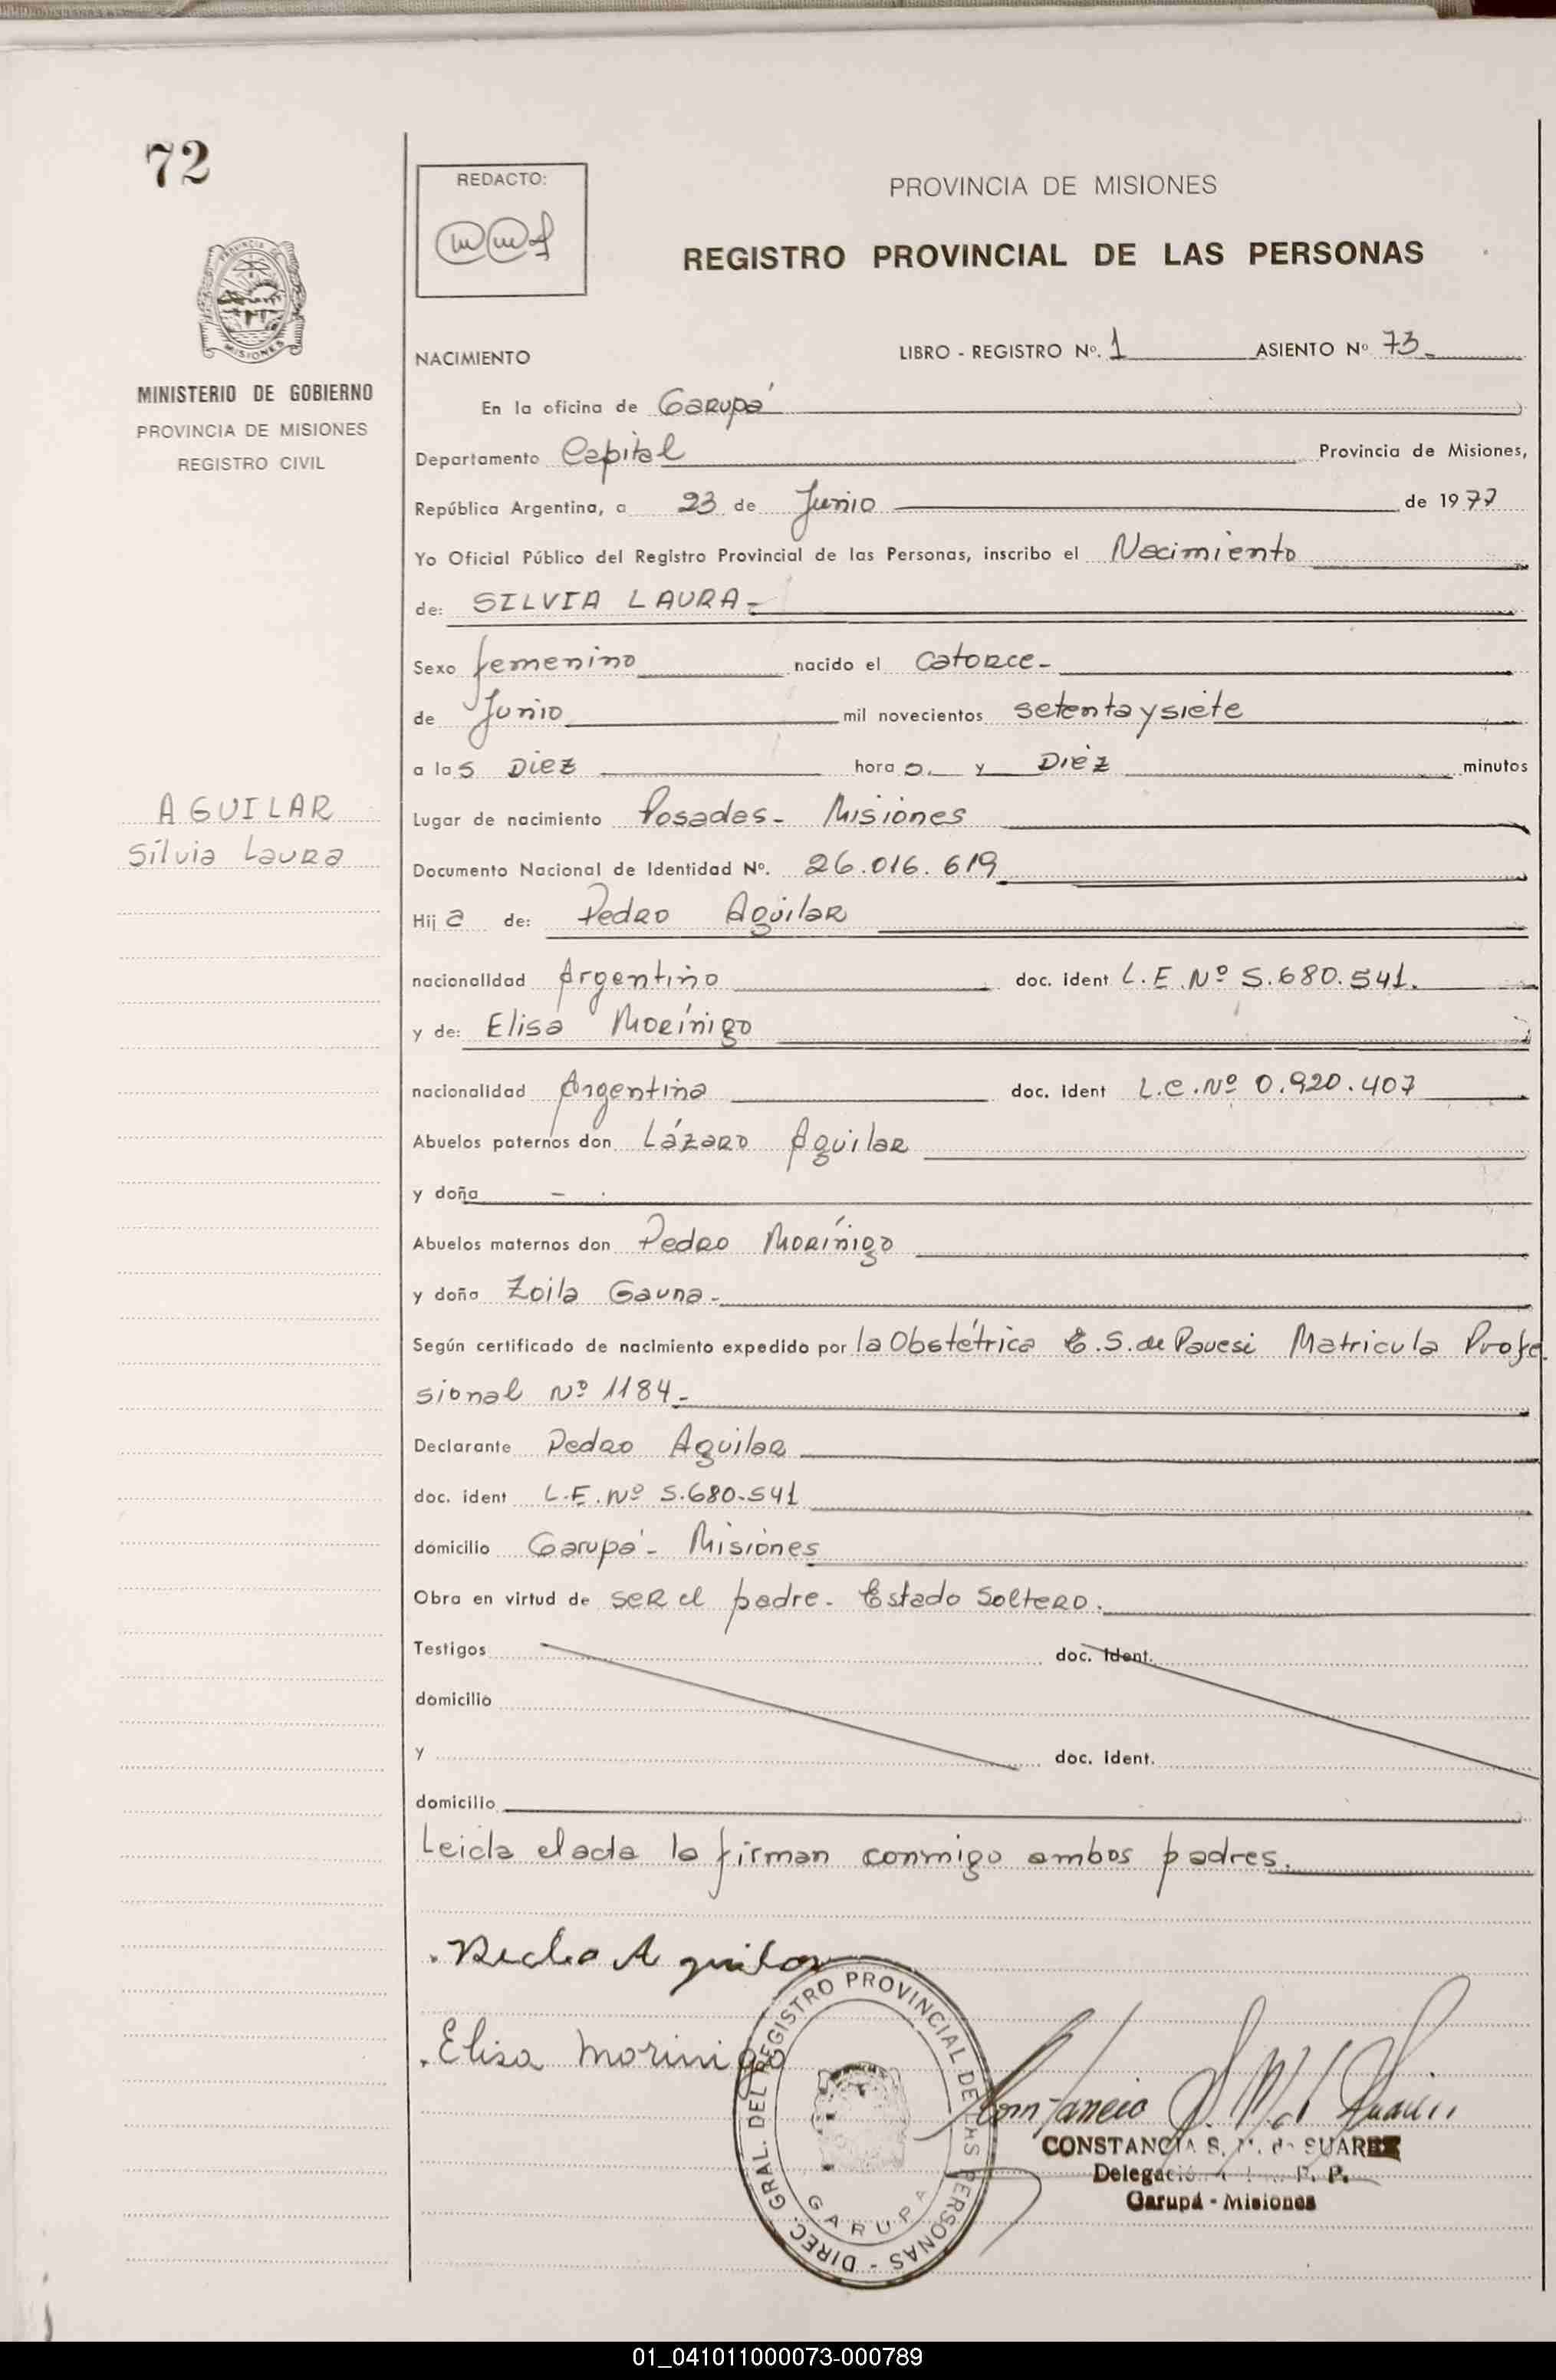 72
REDACTO:
PROVINCIA DE MISIONES
REGISTRO PROVINCIAL DE LAS PERSONAS
MINISTERIO DE GOBIERNO
PROVINCIA DE MISIONES
REGISTRO CIVIL
NACIMIENTO
LIBRO - REGISTRO Nº. 1 ASIENTO Nº 73
En la oficina de Garupá
Departamento Capital Provincia de Misiones,
República Argentina, a 23 de Junio de 1977
Yo Oficial Público del Registro Provincial de las Personas, inscribo el Nacimiento
de: SILVIA LAURA
Sexo femenino nacido el catorce
de Junio mil novecientos setenta y siete
a las Diez horas y Diez minutos
AGUILAR
Silvia Laura
Lugar de nacimiento Posadas - Misiones
Documento Nacional de Identidad Nº. 26.016.619
Hija de: Pedro Aguilar
nacionalidad Argentino doc. ident L.E. Nº 5.680.541.
y de: Elisa Moríñigo
nacionalidad Argentina doc. ident L.C. Nº 0.920.407
Abuelos paternos don Lázaro Aguilar
y doña -
Abuelos maternos don Pedro Moríñigo
y doña Zoila Gauna.
Según certificado de nacimiento expedido por la Obstétrica E. S. de Pavesi Matricula Profe
sional Nº 1184
Declarante Pedro Aguilar
doc. ident L.E. Nº 5.680.541
domicilio Garupá - Misiones
Obra en virtud de ser el padre. Estado Soltero.
Testigos doc. ident.
domicilio
y doc. ident.
domicilio
Leida el acta la firman conmigo ambos padres.
Pedro Aguilar
Elisa Morinigo
DIREC. GRAL. DEL REGISTRO PROVINCIAL DE LAS PERSONAS - GARUPA
CONSTANCIA S. M. de SUAREZ
Garupá - Misiones
01_041011000073-000789